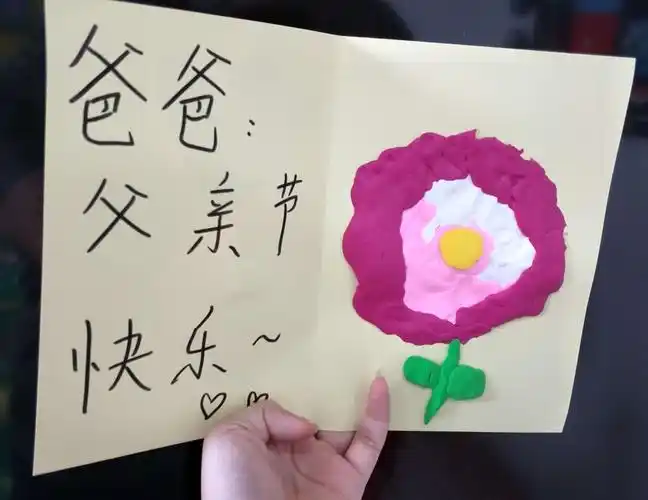 爸爸:
父亲节
快乐~
♡♡